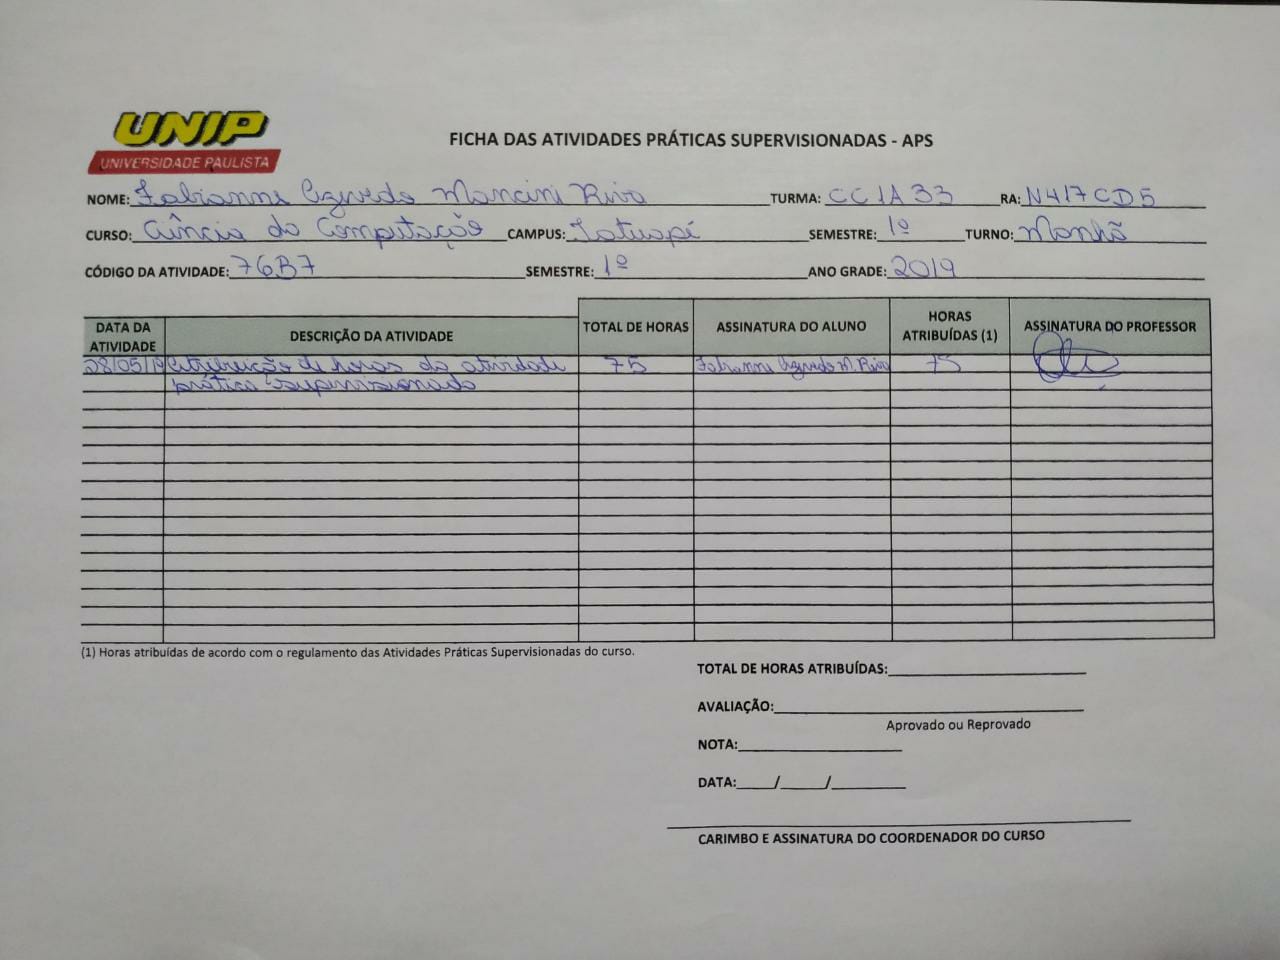 UNIP
UNIVERSIDADE PAULISTA
FICHA DAS ATIVIDADES PRÁTICAS SUPERVISIONADAS - APS
NOME: Fabianne Azevedo Mancini Riva TURMA: CC1A33 RA: N417CD5
CURSO: Ciência da Computação CAMPUS: Tatuapé SEMESTRE: 1º TURNO: Manhã
CÓDIGO DA ATIVIDADE: 76B7 SEMESTRE: 1º ANO GRADE: 2019
DATA DA ATIVIDADE DESCRIÇÃO DA ATIVIDADE TOTAL DE HORAS ASSINATURA DO ALUNO HORAS ATRIBUÍDAS (1) ASSINATURA DO PROFESSOR
28/05/19 Atribuição de horas da atividade 75 Fabianne Azevedo M. Riva 75
prática supervisionada
(1) Horas atribuídas de acordo com o regulamento das Atividades Práticas Supervisionadas do curso.
TOTAL DE HORAS ATRIBUÍDAS:
AVALIAÇÃO:
Aprovado ou Reprovado
NOTA:
DATA: / /
CARIMBO E ASSINATURA DO COORDENADOR DO CURSO